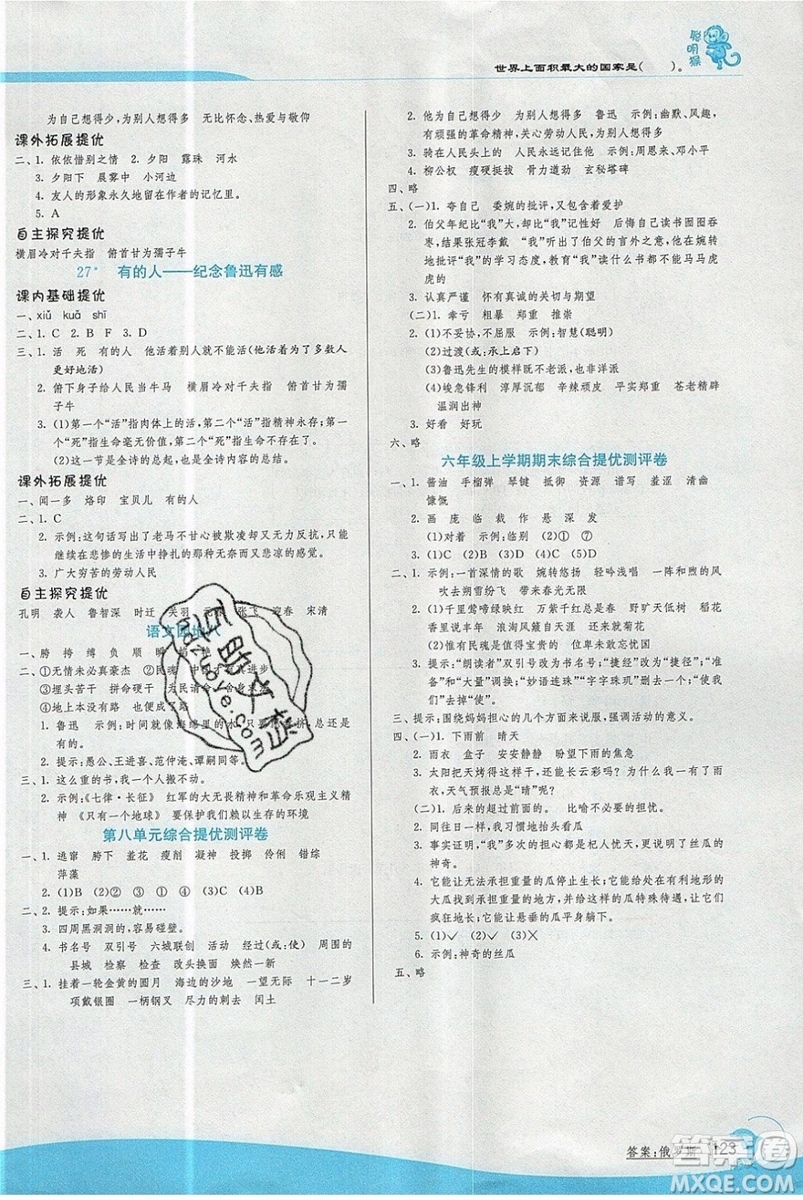 聪明猴
世界上面积最大的国家是(    )。
为自己想得少,为别人想得多  无比怀念、热爱与敬仰
课外拓展提优
二、1. 依依惜别之情  2. 夕阳  露珠  河水
3. 夕阳下  晨雾中  小河边
4. 友人的形象永久地留在作者的记忆里。
5. A
自主探究提优
横眉冷对千夫指  俯首甘为孺子牛
27*  有的人——纪念鲁迅有感
课内基础提优
一、xiǔ  kuǎ  shī
二、1. C  2. B  F  3. D
三、1. 活  死  有的人  他活着别人就不能活(他活着为了多数人
更好地活)
2. 俯下身子给人民当牛马  横眉冷对千夫指  俯首甘为孺
子牛
3. (1)第一个“活”指肉体上的活,第二个“活”精神永存;第一
个“死”指生命毫无价值,第二个“死”指失去生命。
(2)这一节是全诗内容的总结。
课外拓展提优
一、闻一多  烙印  宝贝儿  有的人
二、1. C
2. 示例:这句话写出了老马不甘心被欺凌却又无力反抗,只能
继续在悲惨的生活中挣扎的那种无奈而又悲凉的感觉。
3. 广大穷苦的劳动人民
自主探究提优
孔明  袭人  鲁智深  时迁  关羽  元春  张飞  迎春  宋清
语文园地八
一、膀  挎  缚  负  顺  瞬
二、①无情未必真豪杰  ②民魂
③埋头苦干  拼命硬干  为民请命  舍身求法
④地上本没有路  也便成了路
1. 鲁迅  示例:时间就像海绵里的水
2. 提示:邓世昌、王进喜、范仲淹、谭嗣同等。
三、1. 这么重的书,他一个人搬不动。
2. 示例:《七律·长征》  红军的大无畏精神和革命乐观主义
精神  《只有一个地球》  要保护我们赖以生存的环境
第八单元综合提优测评卷
一、1. 逃窜  胯下  羞花  瘦削  凝神  投掷  伶俐  错综
萍藻
2. (1)B  (2)③  ④  ①  ②  (3)A
二、2. 提示:如果……就……
3. 四周黑洞洞的,容易碰壁。
4. 书名号  双引号  六城联创  活动  经过(或:使)  周围的
县城  检察  检查  改头换面  焕然一新
三、1. 挂着一轮金黄的圆月  海边的沙地  一望无际  十一二岁
项戴银圈  一柄钢叉  尽力的刺去  闰土
2. 他为自己想得少,为别人想得多  鲁迅  示例:幽默、风趣,
有顽强的革命精神,关心劳动人民,为别人想得多
3. 骑在人民头上的人  示例:周恩来、邓小平
4. 柳公权  瘦硬挺拔  骨力劲健  玄秘塔碑
四、略
五、(一)1. 夸自己  委婉的批评,又包含着爱护
2. 伯父年纪比“我”大,却比“我”记性好  后悔当初读书囫囵吞
枣,结果张冠李戴  “我”听出了伯父的言外之意,他在婉转
地批评“我”的学习态度,教育“我”读书什么都不能马马虎
虎的
3. 认真严谨  怀有真诚的关切与期望
(二)1. 幸亏  粗暴  郑重  推崇
2. (1)不妥协,不屈服  示例:智慧(聪明)
(2)过渡(或:承上启下)
(3)鲁迅先生的模样既好玩而又不老派,非常非常“五四”
(4)峻急锋利  淳厚沉郁  辛辣顽皮  平实郑重  苍老精辟
温润出神
3. 好看  好玩
六、略
六年级上学期期末综合提优测评卷
一、1. 酱油  手榴弹  琴键  抵御  资源  谱写  羞涩  清幽
慷慨
2. 画  庞  临  裁  作  悬  深  发
(1)对着  示例:临别  (2)①  ⑦
3. (1)C  (2)D  (3)B  (4)C
二、1. 示例:一首深情的歌  婉转悠扬  轻吟浅唱  一阵和煦的
风  吹去朔雪纷飞  带来春光无限
2. (1)千里莺啼绿映红  万紫千红总是春  野旷天低树  稻花
香里说丰年  浪淘风簸自天涯  还来就菊花
(2)惟有民魂是值得宝贵的  位卑未敢忘忧国
3. 提示:“朗读者”双引号改为书名号;“捷经”改为“捷径”;“准
确”移到“大量”调换;“妙语连珠”“字字珠玑”删去一个;“使我
们”改为“我们”。
三、提示:围绕妈妈担心的几个方面来说服,强调活动的意义。
四、(一)1. 下雨前  晴天
2. 雨衣  盒子  安安静静  盼望下雨的焦急
3. 太阳把天烤得这样干,还能长云彩吗?为什么我一有了雨
衣,天气预报总是“晴”呢?
(二)1. 后来的发现证明,我多次的担心是多余的。
2. 同往日一样,我习惯地抬头去看瓜。
3. 事实证明,“我”多次的担心都是杞人忧天,更说明了丝瓜的
神奇。
4. 它能让无法承担重量的瓜停止生长;它能给处在有利地形的
大瓜找到承担重量的地方,并给这样的瓜特殊待遇,让它们
疯狂地长;它能让悬垂的瓜平身躺下。
5. (1)✓  (2)✓  (3)✕
6. 示例:神奇的丝瓜
五、略
答案:俄罗斯
123
互助文档
huzuoye.com
答案圈
MXQE.COM